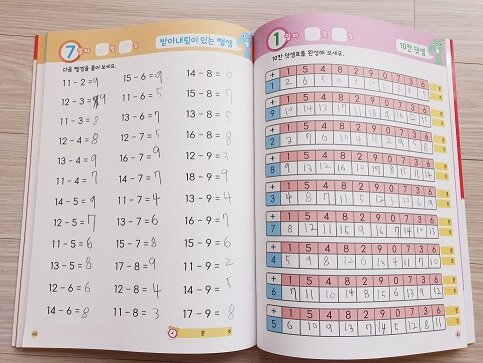 7 일차 월 일
받아내림이 있는 뺄셈
다음 뺄셈을 풀어 보세요.
11 - 2 = 9
12 - 3 = 9
11 - 3 = 8
12 - 4 = 8
13 - 4 = 9
11 - 4 = 7
14 - 5 = 9
12 - 5 = 7
11 - 5 = 6
13 - 5 = 8
12 - 6 = 6
14 - 6 = 8
15 - 6 = 9
11 - 6 = 5
13 - 6 = 7
12 - 7 = 5
16 - 7 = 9
11 - 7 = 4
14 - 7 = 7
13 - 7 = 6
15 - 7 = 8
17 - 8 = 9
12 - 8 = 4
11 - 8 = 3
14 - 8 = 6
15 - 8 = 7
13 - 8 = 5
16 - 8 = 8
12 - 9 = 3
18 - 9 = 9
13 - 9 = 4
16 - 9 = 7
15 - 9 = 6
11 - 9 = 2
14 - 9 = 5
17 - 9 = 8
분 초
1 일차 월 일
10칸 덧셈
10칸 덧셈표를 완성해 보세요.
+ 1 5 4 8 2 9 0 7 3 6
1 2 6 5 9 3
+ 1 5 4 8 2 9 0 7 3 6
9 10 14 13 17
+ 1 5 4 8 2 9 0 7 3 6
2 3
+ 1 5 4 8 2 9 0 7 3 6
8 9 13
+ 1 5 4 8 2 9 0 7 3 6
3 4 8 7 11 5 12 3 10 6 9
+ 1 5 4 8 2 9 0 7 3 6
7 8 12 11 15 9 16 7 14 10 13
+ 1 5 4 8 2 9 0 7 3 6
4 5 9 8 12 6 13 4 11 7 10
+ 1 5 4 8 2 9 0 7 3 6
6 7 11 10
+ 1 5 4 8 2 9 0 7 3 6
5 6 10 9 13